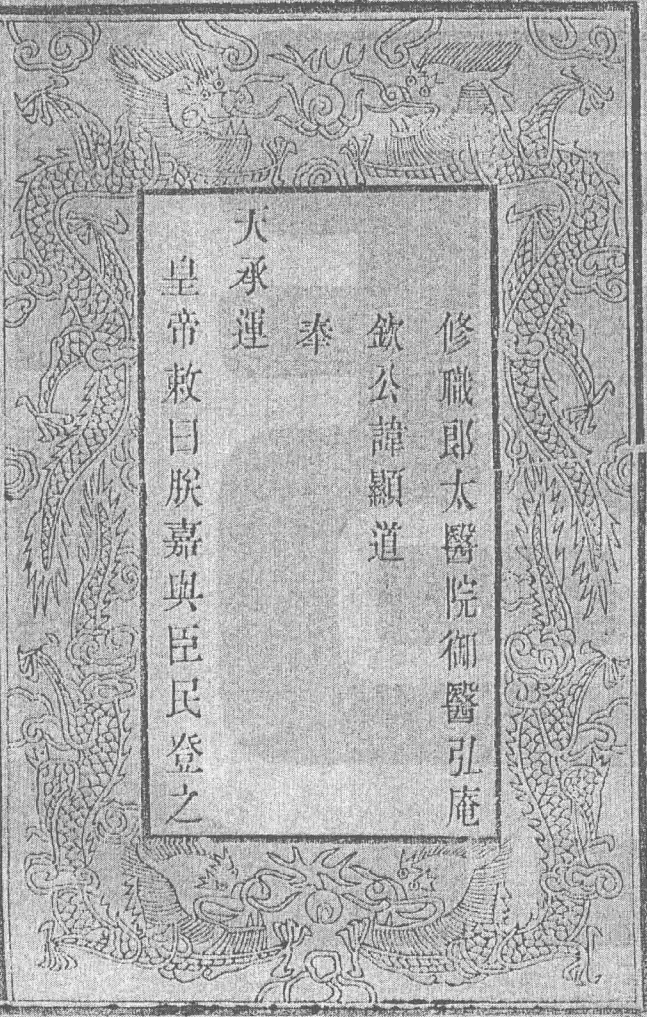 修職郎太醫院御醫弘庵
欽公諱顯道
奉
天承運
皇帝敕曰朕嘉與臣民登之